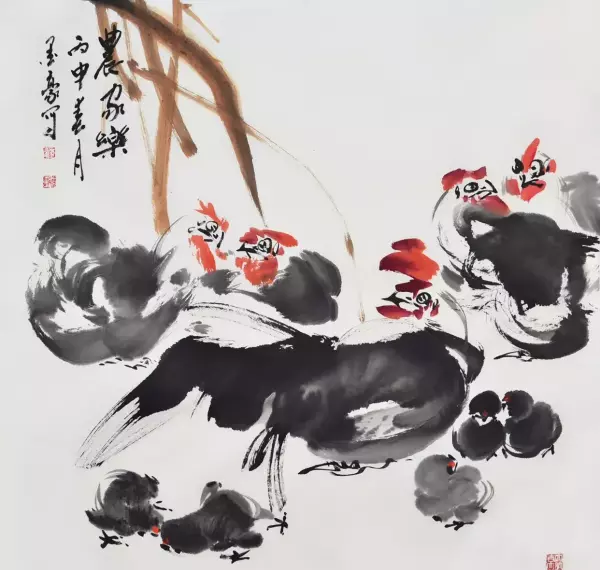 農家樂
丙申春月
墨豪写